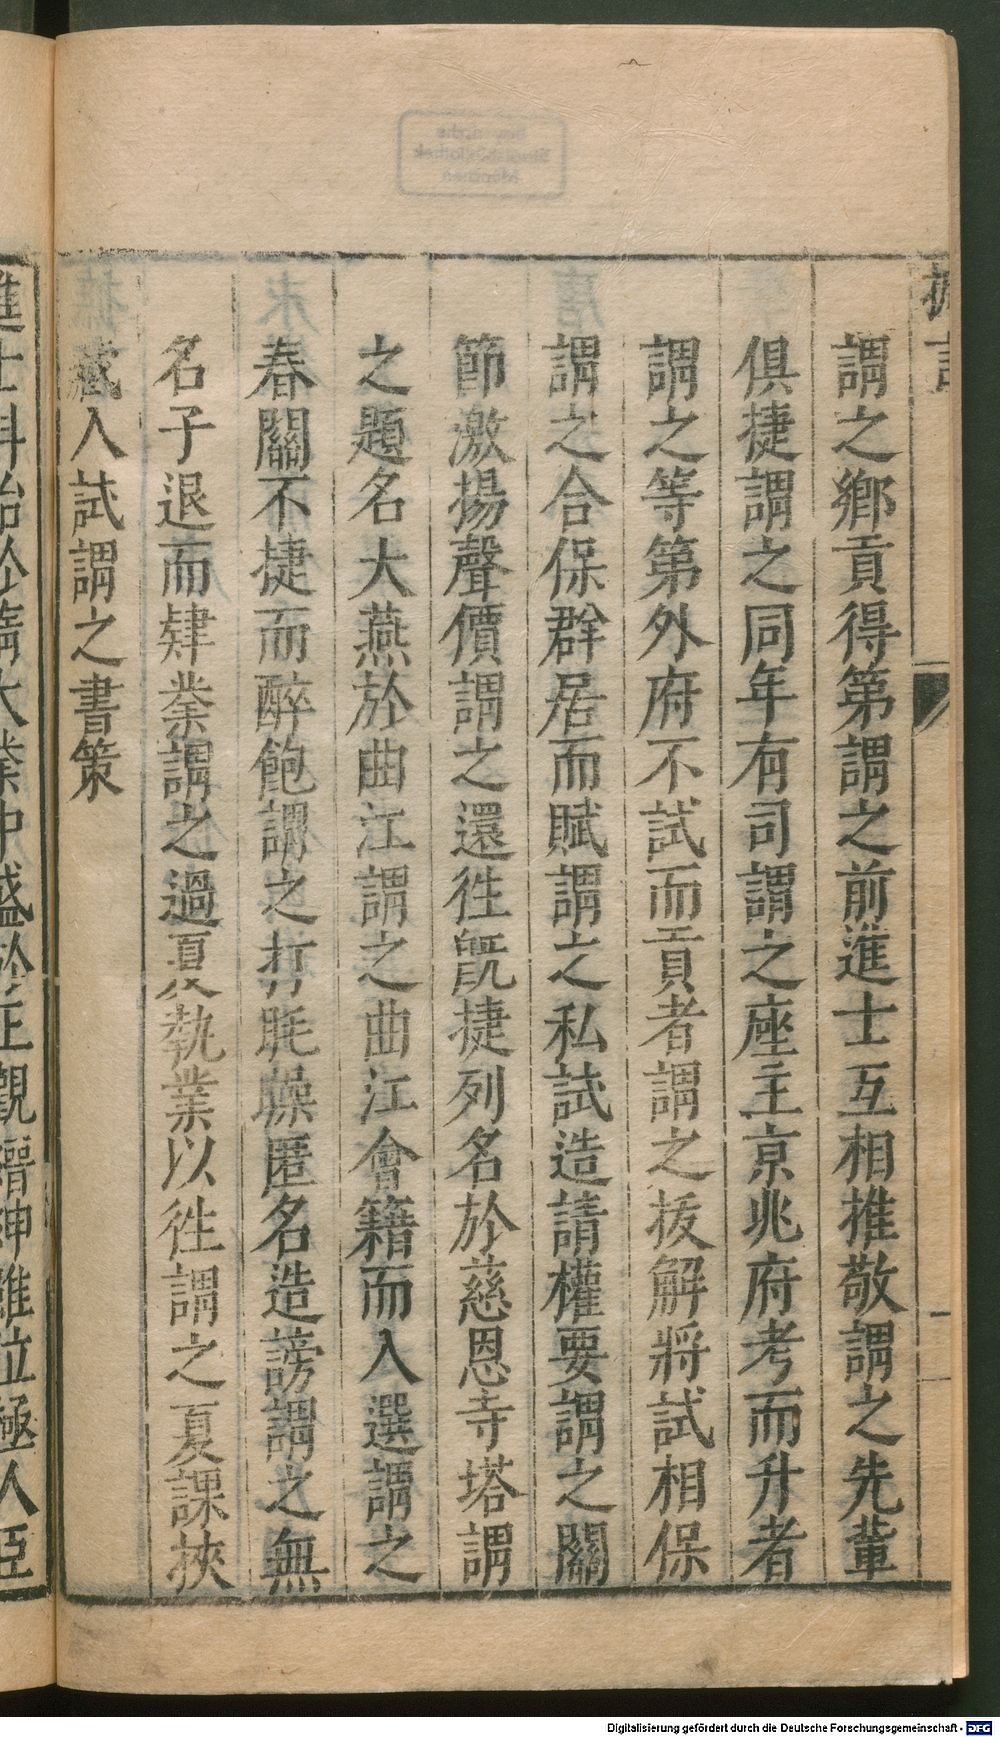 摭言
謂之鄉貢得第謂之前進士互相推敬謂之先輩
俱捷謂之同年有司謂之座主京兆府考而升者
謂之等第外府不試而貢者謂之拔解將試相保
謂之合保群居而賦謂之私試造請權要謂之關
節激揚聲價謂之還徃旣捷列名於慈恩寺塔謂
之題名大燕於曲江謂之曲江會籍而入選謂之
春關不捷而醉飽謂之打毷氉匿名造謗謂之無
名子退而肄業謂之過夏執業以徃謂之夏課挾
藏入試謂之書策
進士科始於隋大業中盛於正觀縉紳雖位極人臣
Digitalisierung gefördert durch die Deutsche Forschungsgemeinschaft - DFG